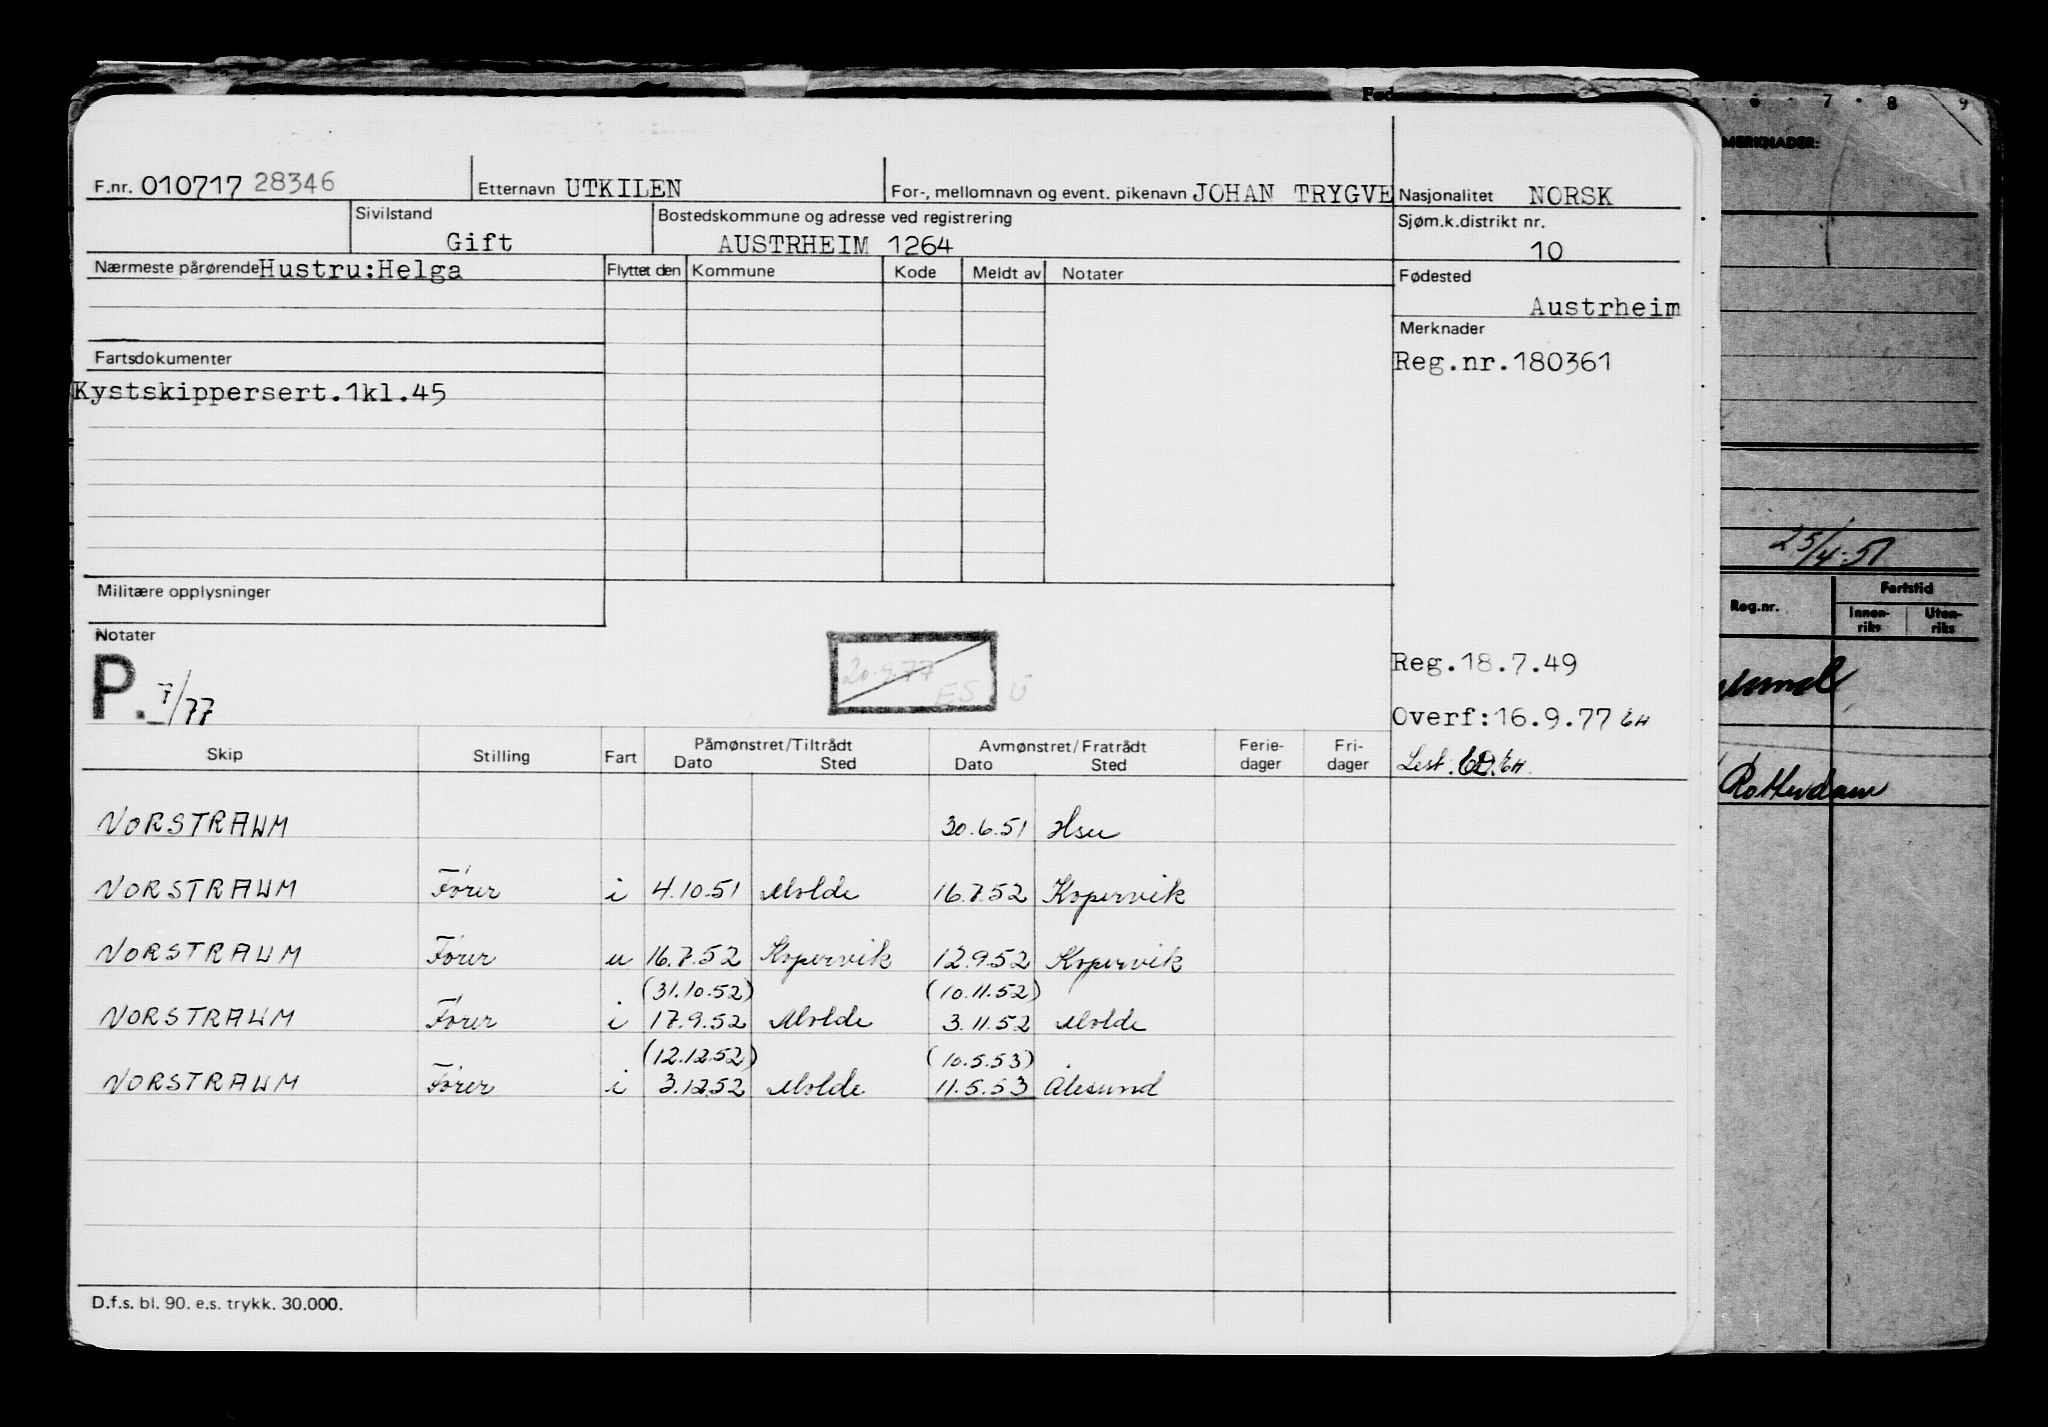 F.nr. 010717 28346 Etternavn UTKILEN For-, mellomnavn og event. pikenavn JOHAN TRYGVE Nasjonalitet NORSK
Sivilstand Gift Bostedskommune og adresse ved registrering AUSTRHEIM 1264 Sjøm.k.distrikt nr. 10
Nærmeste pårørende Hustru:Helga Flyttet den Kommune Kode Meldt av Notater Fødested
Austrheim
Merknader
Fartsdokumenter Reg.nr.180361
Kystskippersert.1kl.45
Militære opplysninger
Notater
P. 7/77
20.9.77
ES
Reg.18.7.49
Overf:16.9.77 EH
Skip Stilling Fart Påmønstret/Tiltrådt Dato Sted Avmønstret/Fratrådt Dato Sted Ferie-dager Fri-dager Lest. EH.
NORSTRAUM 30.6.51 Hsu
NORSTRAUM Fører i 4.10.51 Molde 16.7.52 Kopervik
NORSTRAUM Fører u 16.7.52 Kopervik 12.9.52 Kopervik
(31.10.52) (10.11.52)
NORSTRAUM Fører i 17.9.52 Molde 3.11.52 Molde
(12.12.52) (10.5.53)
NORSTRAUM Fører i 3.12.52 Molde 11.5.53 Ålesund
D.f.s. bl. 90. e.s. trykk. 30.000.
6 7 8 9
MERKNADER:
25/4-51
Reg.nr. Fartstid
Innen-riks Uten-riks
Rotterdam